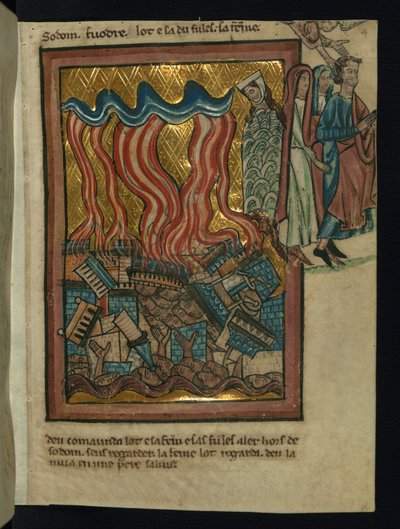 Sodom. fuodre. lot e sa du fules. la feme.
deu comaunda lot e la feme e las fules aler hors de
sodom. sens regarder. la feme lot regarda. deu la
mua en une pere salus.